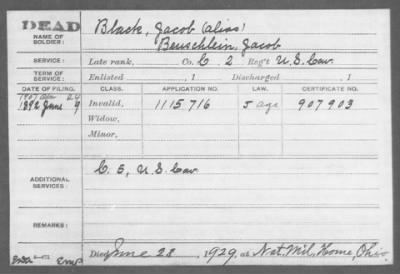 DEAD
NAME OF SOLDIER:
Black, Jacob (alias)
Beuschlein, Jacob
SERVICE: Late rank, Co. C. 2 Reg't U.S. Cav.
TERM OF SERVICE: Enlisted , 1 Discharged , 1
DATE OF FILING. CLASS. APPLICATION NO. LAW. CERTIFICATE NO.
1907 24
1892 June 9 Invalid, 1115716 S age 907903
Widow,
Minor,
ADDITIONAL SERVICES: C. 5, U.S. Cav.
REMARKS:
Died June 28, 1929, at Nat. Mil. Home, Ohio.